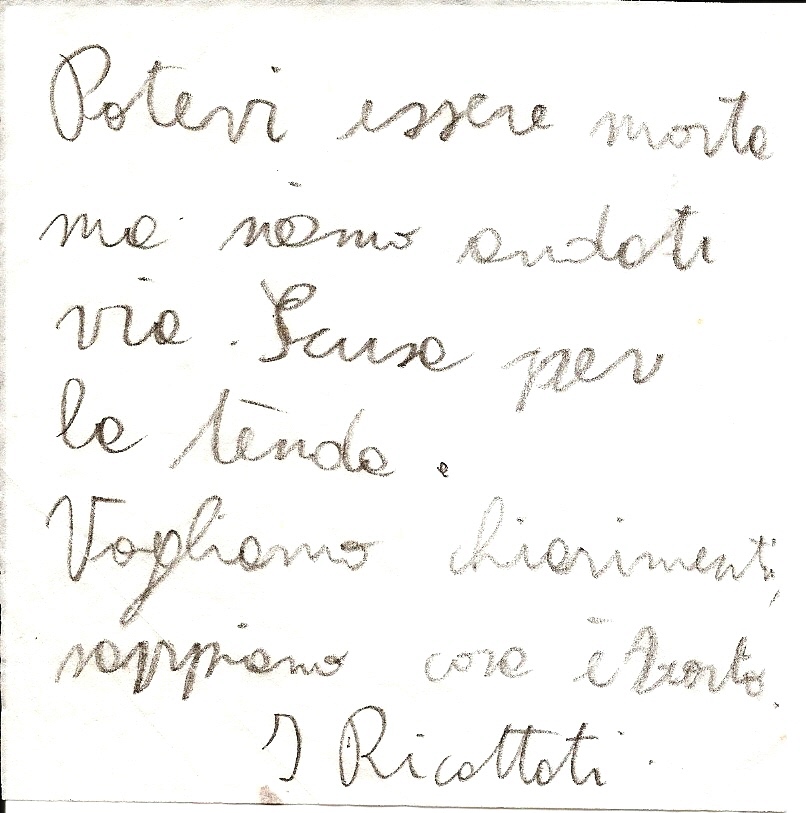 Potevi essere morta
ma siamo andati
via. Scusa per
la tenda.
Vogliamo chiarimenti,
sappiamo cosa è
I Ricattati.